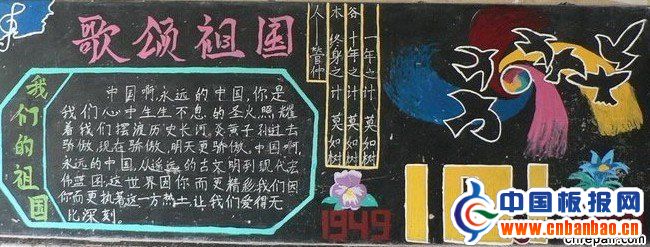 歌颂祖国
我们的祖国
中国啊,永远的中国,你是
我们心中生生不息的圣火,照耀
着我们摆渡历史长河,炎黄子孙过去
骄傲,现在骄傲,明天更骄傲,中国啊,
永远的中国,从遥远的古文明到现代宏
伟蓝图,这世界因你而更精彩,我们因
你而更执著这一方热土,让我们爱得无
比深刻.
一年之计 莫如树
谷 十年之计 莫如树
木 终身之计 莫如树
人——管仲
1949
10.1
中国板报网
www.cnbanbao.cn